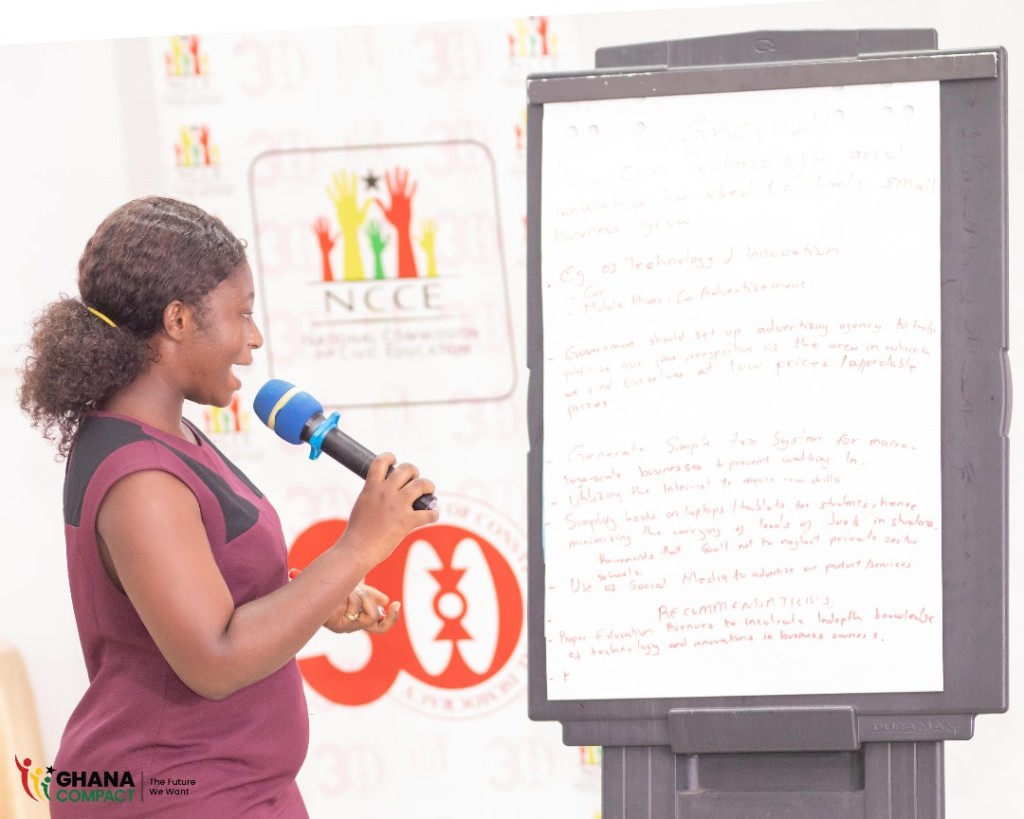 NCCE
NATIONAL COMMISSION
ON CIVIC EDUCATION
30
GHANA
COMPACT
The Future
We Want
GROUP
How can Technology and
Innovation be used to help small
business grow?
Eg of Technology & Innovation
- Car
- Mobile Phones
Advertisement.
- Government should set up advertising agency to help
publicise our jobs irrespective of the area in which
we find ourselves at low prices / affordable
prices.
- Generate Simple tax System for
businesses to prevent walking In.
- Utilizing the Internet to acquire new skills
- Simplify books on laptops / tablets for students, hence
minimizing the carrying of loads of books in students.
not to neglect private sector
schools.
- Use of Social Media to advertise our product / services
RECOMMENDATIONS
- Proper Education Avenues to Inculcate Indepth knowledge
of technology and innovations in business owners.
DURAMAX